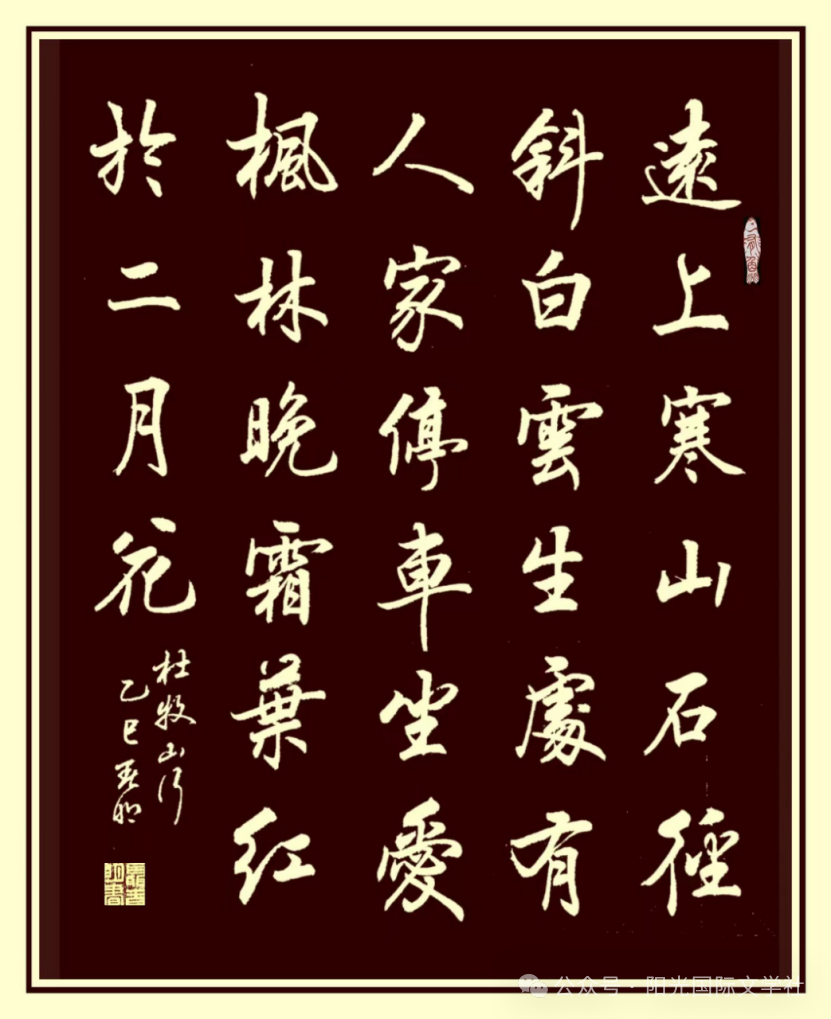 遠上寒山石徑
斜白雲生處有
人家停車坐愛
楓林晚霜葉紅
於二月花
杜牧山行
乙巳
公众号·阳光国际文学社